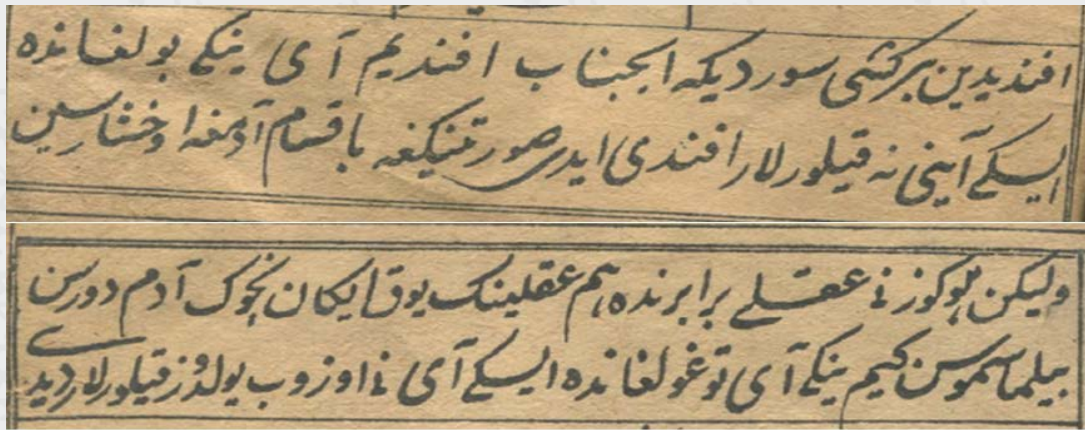 افندیدین بر کشی سوردیکه ایجناب افندیم آی ینکی بولغانده
ایسکی آینی نه قیلورلار افندی ایدی صورتینکغه باقسام آدمغه اوخشارسین
ولیکن هوکوزنی عقلی برابرنده هم عقلینک یوق ایکان نچوک آدم دورسن
بیلماسموسن کیم ینکی آی توغولغانده ایسکی آی نی اوزوب یولدوز قیلورلار دیدی